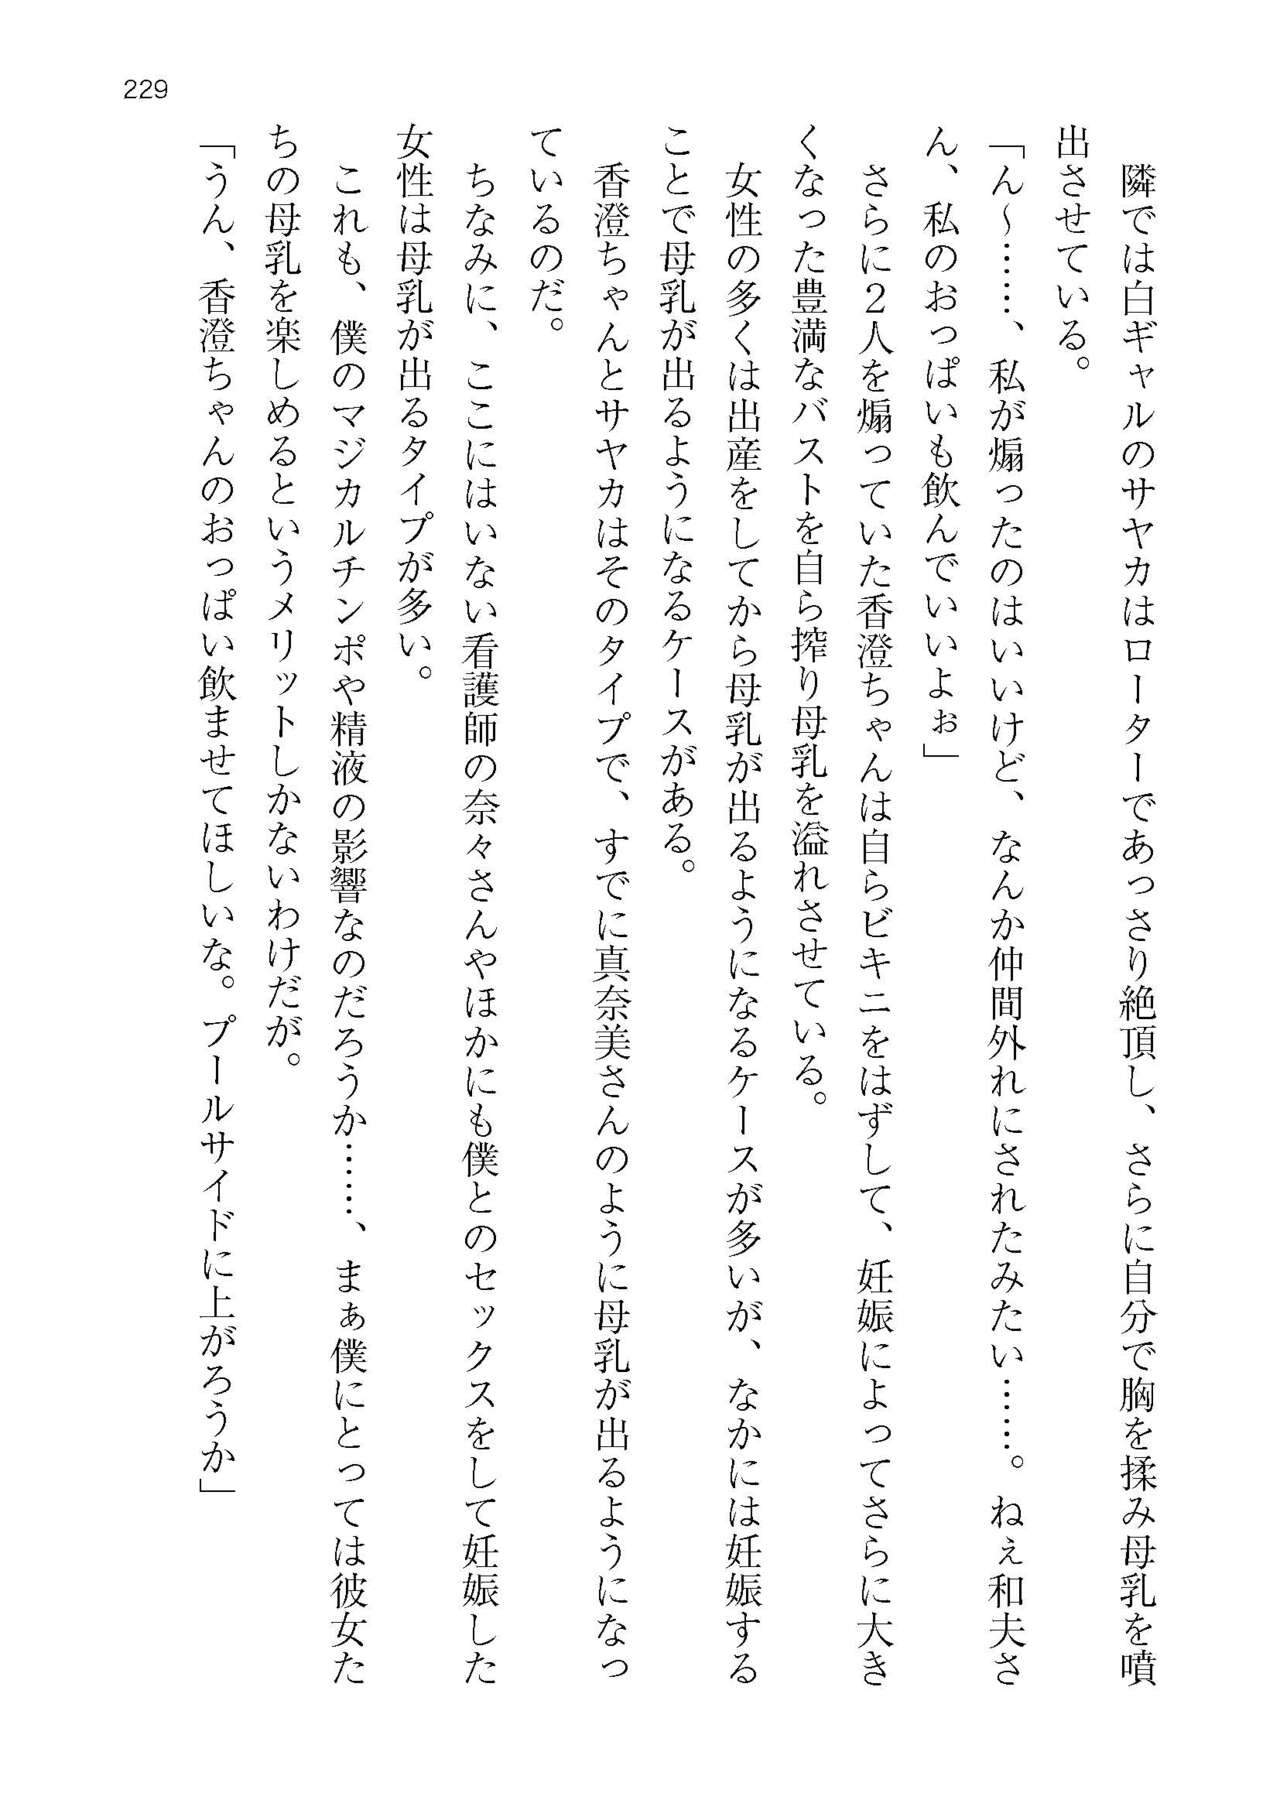 229
隣では白ギャルのサヤカはローターであっさり絶頂し、さらに自分で胸を揉み母乳を噴
出させている。
「ん〜……、私が煽ったのはいいけど、なんか仲間外れにされたみたい……。ねぇ和夫さ
ん、私のおっぱいも飲んでいいよぉ」
さらに２人を煽っていた香澄ちゃんは自らビキニをはずして、妊娠によってさらに大き
くなった豊満なバストを自ら搾り母乳を溢れさせている。
女性の多くは出産をしてから母乳が出るようになるケースが多いが、なかには妊娠する
ことで母乳が出るようになるケースがある。
香澄ちゃんとサヤカはそのタイプで、すでに真奈美さんのように母乳が出るようになっ
ているのだ。
ちなみに、ここにはいない看護師の奈々さんやほかにも僕とのセックスをして妊娠した
女性は母乳が出るタイプが多い。
これも、僕のマジカルチンポや精液の影響なのだろうか……、まぁ僕にとっては彼女た
ちの母乳を楽しめるというメリットしかないわけだが。
「うん、香澄ちゃんのおっぱい飲ませてほしいな。プールサイドに上がろうか」